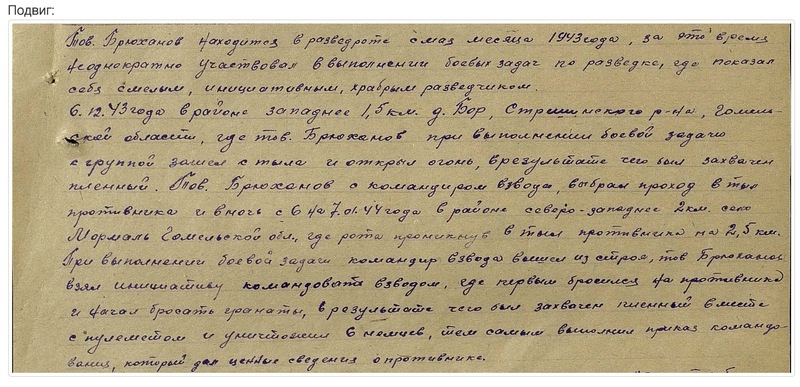 Подвиг:
Тов. Брюханов находится в разведроте с мая месяца 1943 года, за это время
неоднократно участвовал в выполнении боевых задач по разведке, где показал
себя смелым, инициативным, храбрым разведчиком.
6.12.43 года в районе западнее 1,5 км. д. Бор, Стрешинского р-на, Гомель-
ской области, где тов. Брюханов при выполнении боевой задачи
с группой зашел с тыла и открыл огонь, в результате чего был захвачен
пленный. Тов. Брюханов с командиром взвода, выбрал проход в тыл
противника и в ночь с 6 на 7.01.44 года в районе северо-западнее 2 км. село
Мормаль Гомельской обл., где рота проникнув в тыл противника на 2,5 км.
При выполнении боевой задачи командир взвода вышел из строя, тов Брюханов
взял инициативу командовать взводом, где первым бросился на противника
и начал бросать гранаты, в результате чего был захвачен пленный вместе
с пулеметом и уничтожил 6 немцев, тем самым выполнил приказ командо-
вания, который дал ценные сведения о противнике.